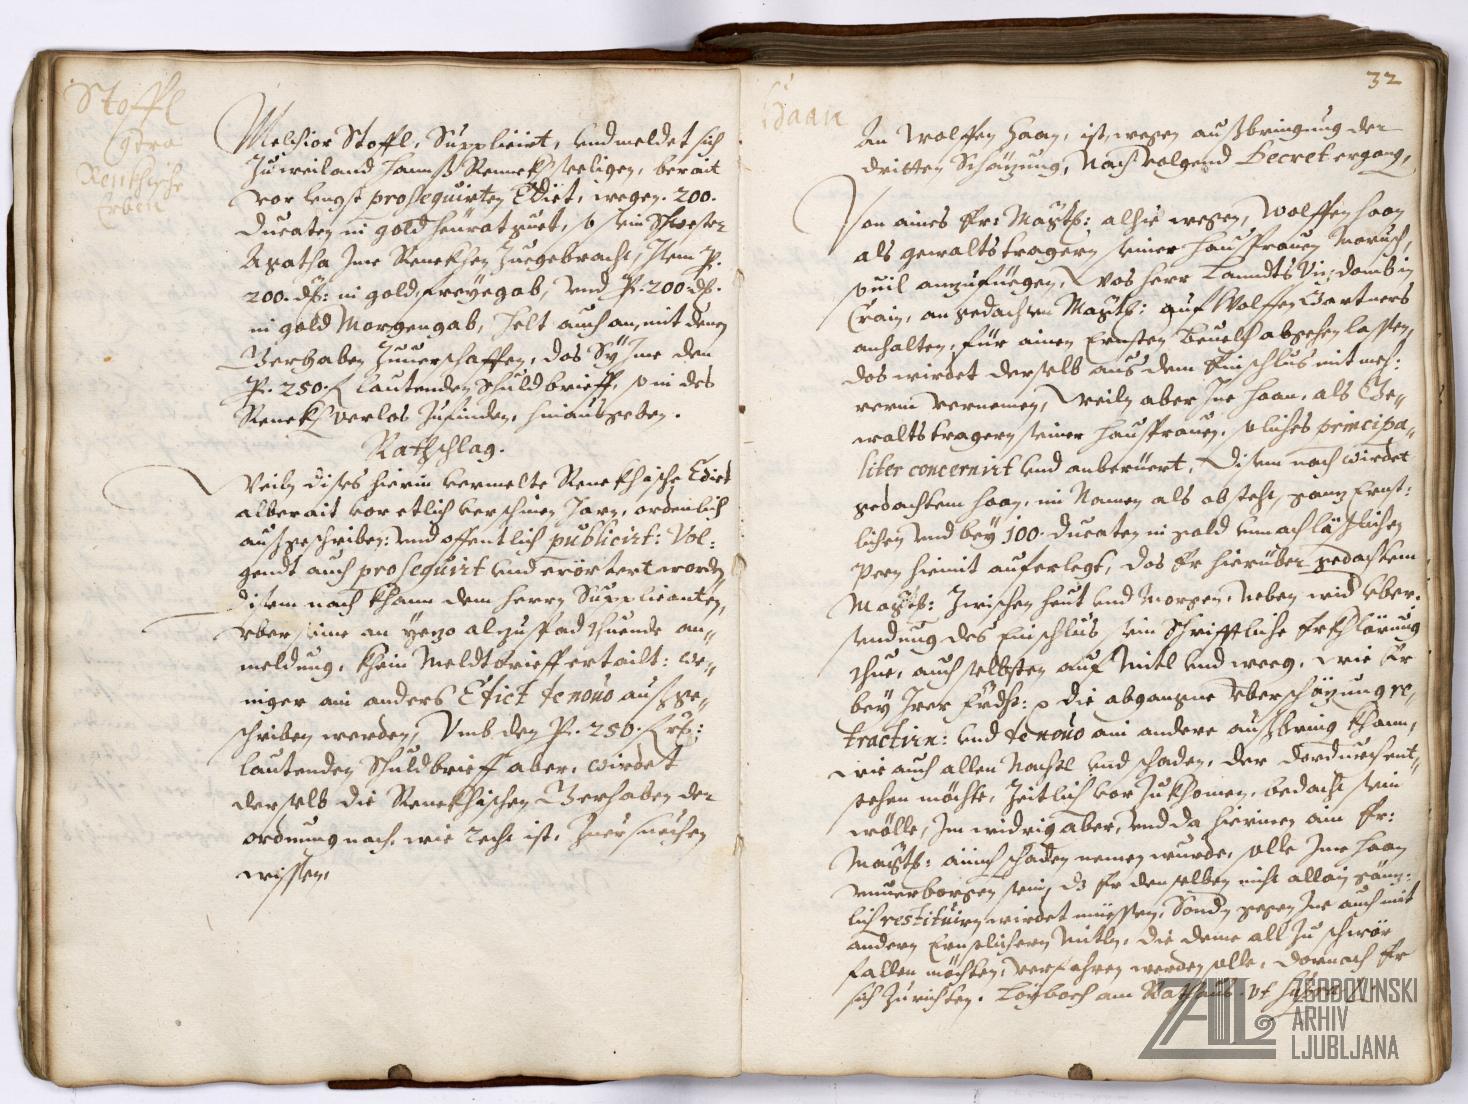 Stoffl
Ctra
Renkhische
Erben
Melchior Stoffl, Supplicirt, und meldet sich
Zu weiland Hannß Renekh seeligen, berait
vor lengst prosequirten Edict, wegen 200.
Ducaten in gold heüratguet, so sein Schwester
Agatha Ime Renekhen Zuegebracht, Item Pr.
200. dt: in gold, freyegab, und Pr. 200. dt.
in gold Morgengab, helt auch an, mit denen
Gerhaben Zuuerschaffen, das Sÿ Ime den
Pr. 250. f. lautenden Schuldbrieff, so in des
Renekh verlas Zufinden, hinaus geben.
Rathschlag.
Weiln dises hierin vermelte Renekhische Edict
alberait vor etlich verschinen Jarn, ordenlich
außgeschriben: und offentlich publicirt: Vol:
gendt auch prosequirt und erörtert worden
disem nach khann dem herrn Supplicanten,
über seine an yezo alzuspad thuende an„
meldung, khein Meldtbrieff ertailt: we„
niger ain anders Edict de nouo außge„
schriben werden, Umb den Pr. 250. f
lautenden Schuldbrieff aber, wirdet
derselb die Renekhischen Gerhaben der
ordnung nach, wie Recht ist, Zuersuechen
wissen.
32
Haan
An Wolffen Haan, ist wegen außbringung der
dritten Schäzung, Nachvolgend Decret ergang,
Von aines Er: Magts: alhie wegen, Wolffen Haan
als gewaltstragern seiner Haußfrauen Maruschi,
soüil anzufüegen, Was herr Lanndts Vizdomb in
Crain, an gedachten Magts: auf Wolffen Gartners
anhalten, für ainen Ernsten beuelch abgehen lassen,
das wirdet derselb aus dem Einschlus mit meh:
rerm vernemen, Weiln aber Ine Haan, als Ge„
waltstragern seiner Haußfrauen, solches principa„
liter concernirt und anberüert, Disem nach wirdet
gedachtem Haan, im Namen als obsteht, ganz Ernst:
lichen und bey 100. Ducaten in gold unnachläßlichen
Peen hiemit auferlegt, das Er hierüber gedachtem
Magts: Zwischen heut und Morgen, neben wider über„
sendung des Einschlus, sein Schrifftliche Erkhlärung
thue, auch selbsten auf Mitl und weeg, wie Er
bey Irer Frdht: die abgangne überschäzung re„
tractirn: und de nouo ain andere außbring khann,
wie auch allen Nachtl und schaden, der dardurch ent„
stehen möchte, Zeitlich vor Zu khomen, bedacht sein
wölle, Im widrig aber, und da hierinen ain Er:
Magts: ainich schaden nemen wurde, solle Ime Haan
unuerborgen sein, dz Er denselben nicht allain gänz:
lich restituirn wirdet müessen, Sondern gegen Ine auch mit
andern Ernstlichern Mitln, die deme all Zu schwär
fallen möchten, verfahren werden solle, darnach Er
sich Zurichten. Laybach am Rathaus. ut supra
ZAL
ZGODOVINSKI
ARHIV
LJUBLJANA